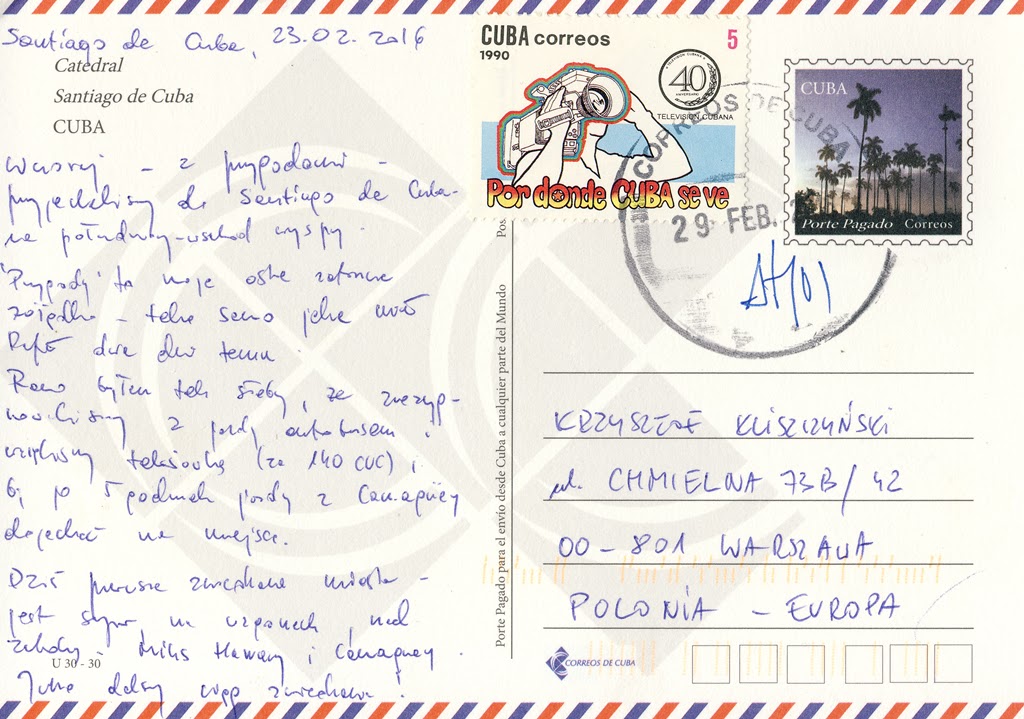 Santiago de Cuba, 23.02.2016
Catedral
Santiago de Cuba
CUBA
Wczoraj – z przygodami –
przyjechaliśmy do Santiago de Cuba –
na południowy-wschód wyspy.
'Przygody' to moje ostre zatrucie
żołądka – takie samo jakie miał
Rafał dwa dni temu.
Rano byłem tak słaby, że zrezyg-
nowaliśmy z jazdy autobusem i
wzięliśmy taksówkę (za 140 CUC) i
by po 5 godzinach jazdy z Camagüey
dojechać na miejsce.
Dziś pierwsze zwiedzanie miasta –
jest super na wzgórzach, nad
zatoką. Miks Hawany i Camagüey.
Jutro dalszy ciąg zwiedzania!
U 30 - 30
CUBA correos
1990
5
40
ANIVERSARIO
TELEVISION CUBANA
Por donde CUBA se ve
CORREOS DE CUBA
29 FEB. 2
CUBA
Porte Pagado Correos
Porte Pagado para el envío desde Cuba a cualquier parte del Mundo
KRZYSZTOF KLISZCZYŃSKI
ul. CHMIELNA 73B/42
00-801 WARSZAWA
POLONIA – EUROPA
CORREOS DE CUBA